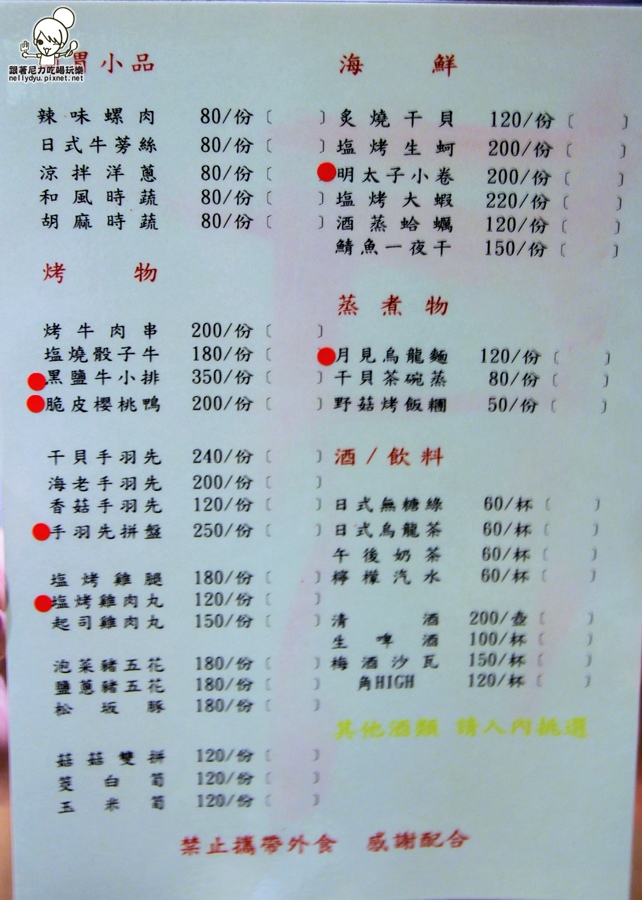 跟著尼力吃喝玩樂
nellydyu.pixnet.net
胃小品
辣味螺肉 80/份〔 〕
日式牛蒡絲 80/份〔 〕
涼拌洋蔥 80/份〔 〕
和風時蔬 80/份〔 〕
胡麻時蔬 80/份〔 〕
烤物
烤牛肉串 200/份〔 〕
塩燒骰子牛 180/份〔 〕
黑鹽牛小排 350/份〔 〕
脆皮櫻桃鴨 200/份〔 〕
干貝手羽先 240/份〔 〕
海老手羽先 200/份〔 〕
香菇手羽先 120/份〔 〕
手羽先拼盤 250/份〔 〕
塩烤雞腿 180/份〔 〕
塩烤雞肉丸 120/份〔 〕
起司雞肉丸 150/份〔 〕
泡菜豬五花 180/份〔 〕
鹽蔥豬五花 180/份〔 〕
松坂豚 180/份〔 〕
菇菇雙拼 120/份〔 〕
茭白筍 120/份〔 〕
玉米筍 120/份〔 〕
海鮮
炙燒干貝 120/份〔 〕
塩烤生蚵 200/份〔 〕
明太子小卷 200/份〔 〕
塩烤大蝦 220/份〔 〕
酒蒸蛤蠣 120/份〔 〕
鯖魚一夜干 150/份〔 〕
蒸煮物
月見烏龍麵 120/份〔 〕
干貝茶碗蒸 80/份〔 〕
野菇烤飯糰 50/份〔 〕
酒/飲料
日式無糖綠 60/杯〔 〕
日式烏龍茶 60/杯〔 〕
午後奶茶 60/杯〔 〕
檸檬汽水 60/杯〔 〕
清酒 200/壺〔 〕
生啤酒 100/杯〔 〕
梅酒沙瓦 150/杯〔 〕
角HIGH 120/杯〔 〕
其他酒類 請入內挑選
禁止攜帶外食 感謝配合